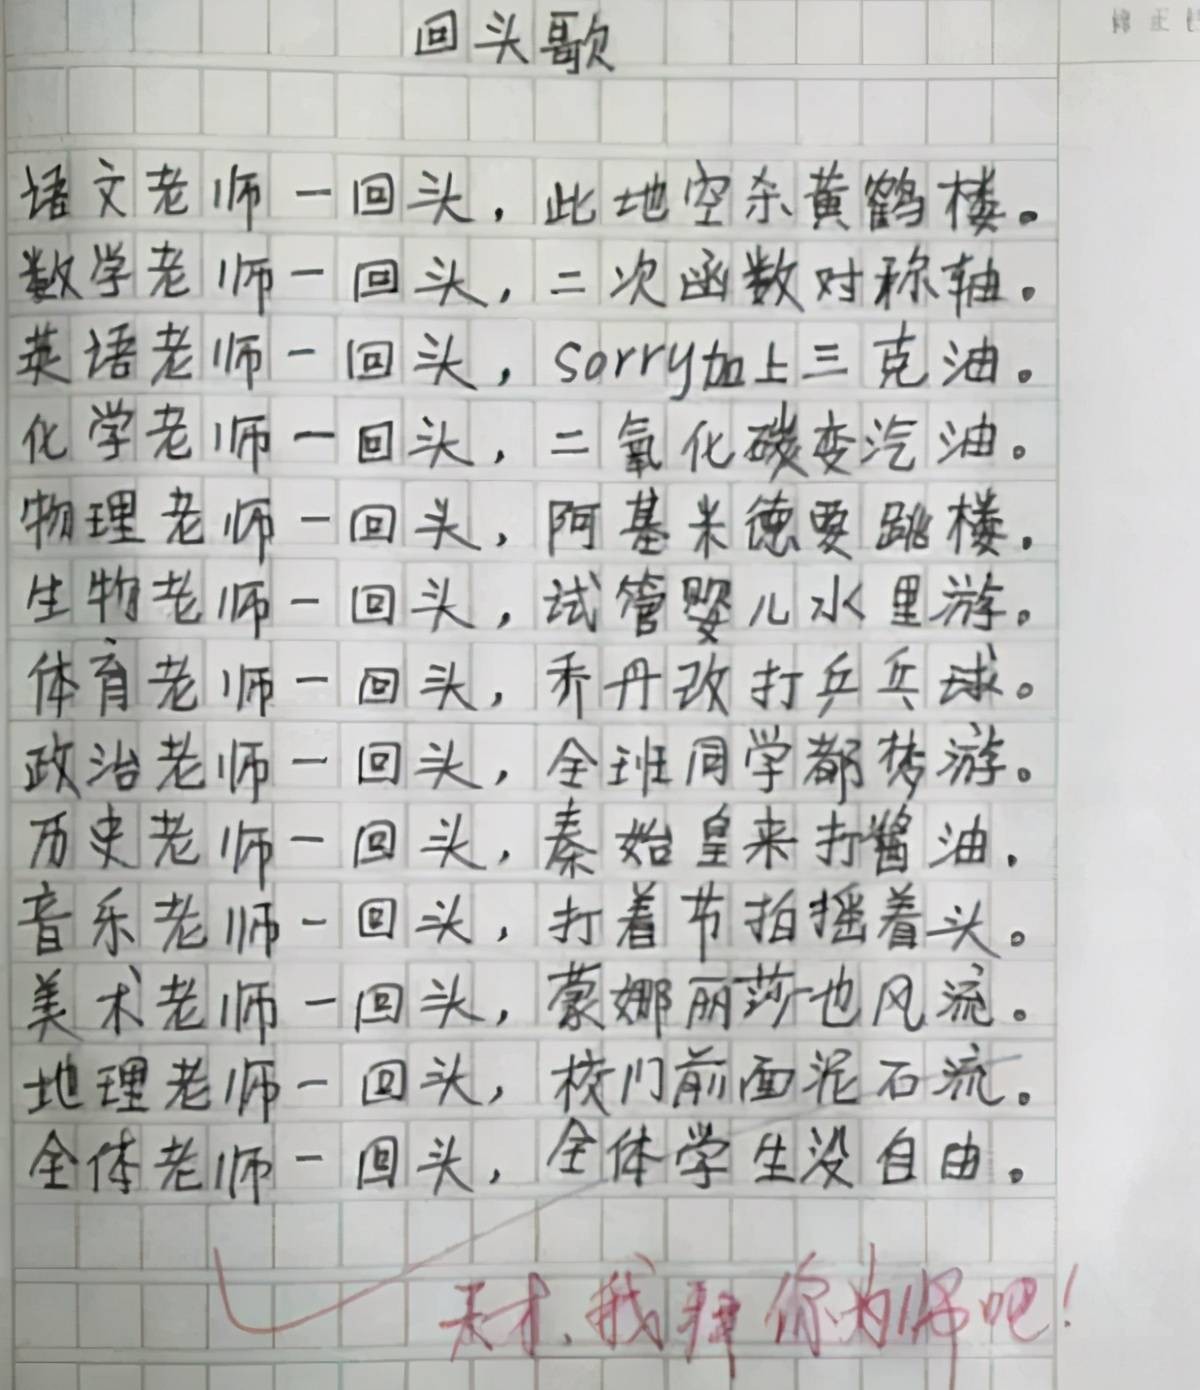 回头歌
语文老师一回头，此地空杀黄鹤楼。
数学老师一回头，二次函数对称轴。
英语老师一回头，sorry加上三克油。
化学老师一回头，二氧化碳变汽油。
物理老师一回头，阿基米德要跳楼。
生物老师一回头，试管婴儿水里游。
体育老师一回头，乔丹改打乒乓球。
政治老师一回头，全班同学都梦游。
历史老师一回头，秦始皇来打酱油。
音乐老师一回头，打着节拍摇着头。
美术老师一回头，蒙娜丽莎也风流。
地理老师一回头，校门前面泥石流。
全体老师一回头，全体学生没自由。
天才、我拜你为师吧！